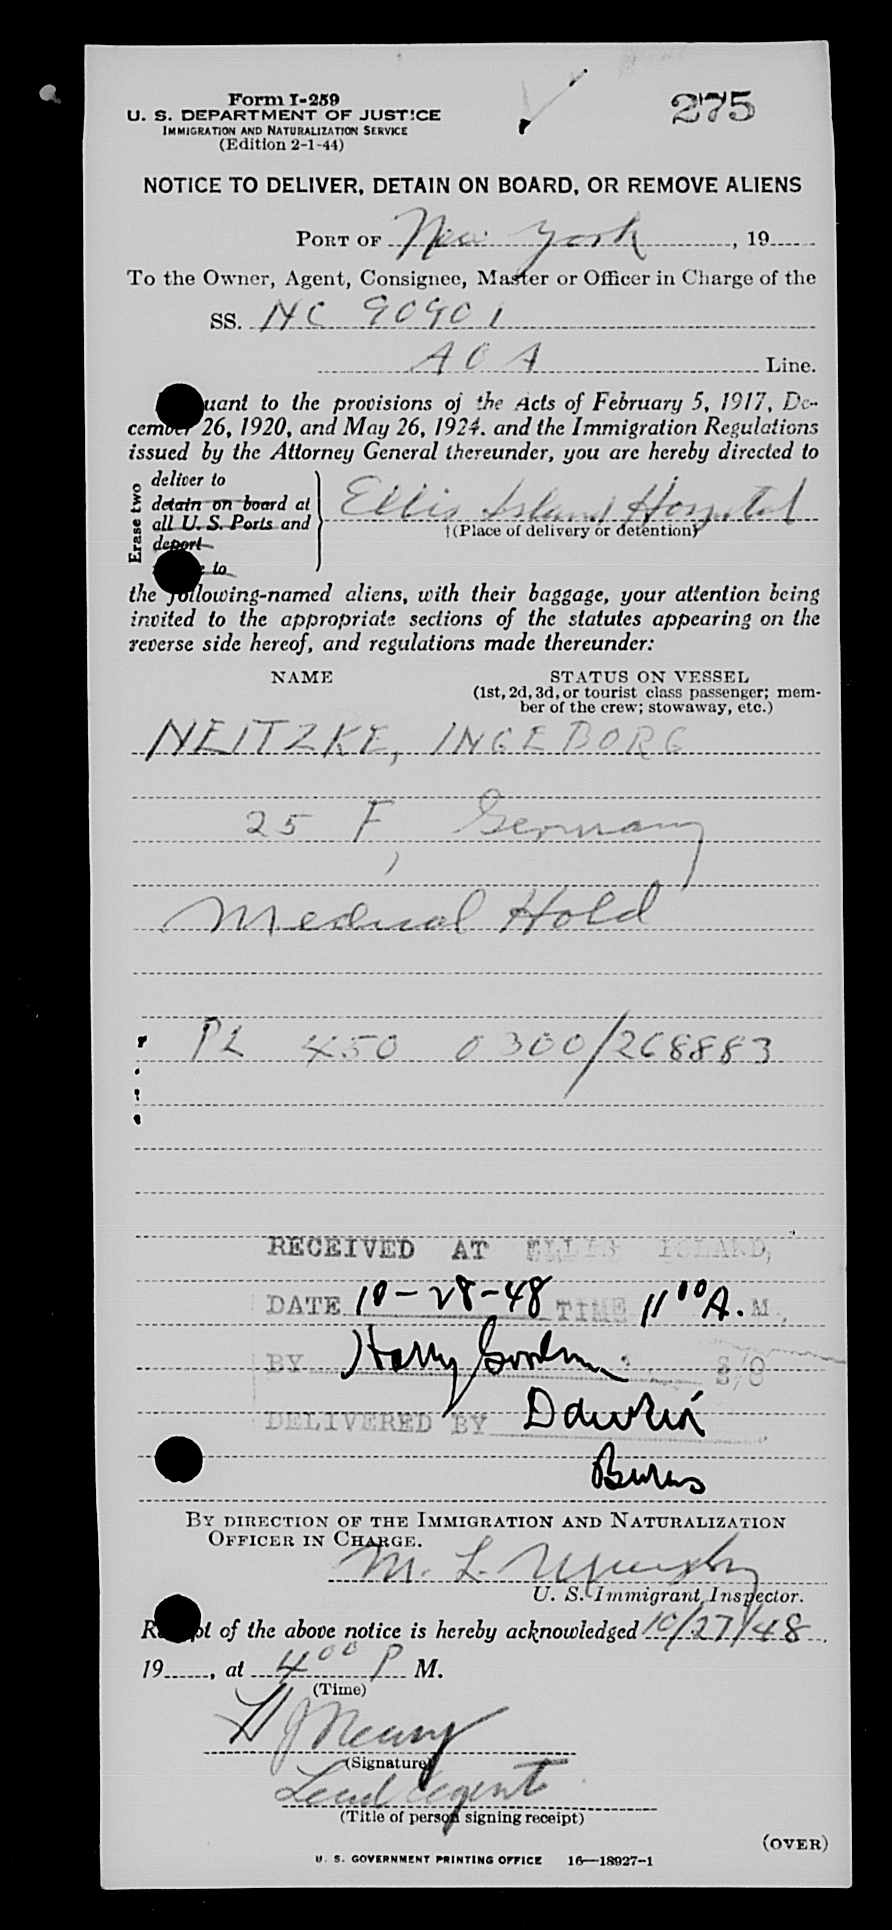 Form I-259
275
U. S. DEPARTMENT OF JUSTICE
IMMIGRATION AND NATURALIZATION SERVICE
(Edition 2-1-44)
NOTICE TO DELIVER, DETAIN ON BOARD, OR REMOVE ALIENS
PORT OF New York, 19
To the Owner, Agent, Consignee, Master or Officer in Charge of the
SS. NC 90901
AOA Line.
uant to the provisions of the Acts of February 5, 1917, De-
cember 26, 1920, and May 26, 1924, and the Immigration Regulations
issued by the Attorney General thereunder, you are hereby directed to
Erase two
deliver to
detain on board at
all U. S. Ports and
deport
to
Ellis Island Hospital
(Place of delivery or detention)
the following-named aliens, with their baggage, your attention being
invited to the appropriate sections of the statutes appearing on the
reverse side hereof, and regulations made thereunder:
NAME STATUS ON VESSEL
(1st, 2d, 3d, or tourist class passenger; mem-
ber of the crew; stowaway, etc.)
NEITZKE, INGEBORG
25 F, Germany
Medical Hold
PL 450 0300/268883
RECEIVED AT ELLIS ISLAND,
DATE 10-28-48 TIME 11 00 A. M.
BY Harry
DELIVERED BY
Burns
BY DIRECTION OF THE IMMIGRATION AND NATURALIZATION
OFFICER IN CHARGE.
M. L.
U. S. Immigrant Inspector.
R pt of the above notice is hereby acknowledged 10/27/48,
19, at 4 00 P M.
(Time)
(Signature)
Lead Agent
(Title of person signing receipt)
(OVER)
U. S. GOVERNMENT PRINTING OFFICE 16—18927-1